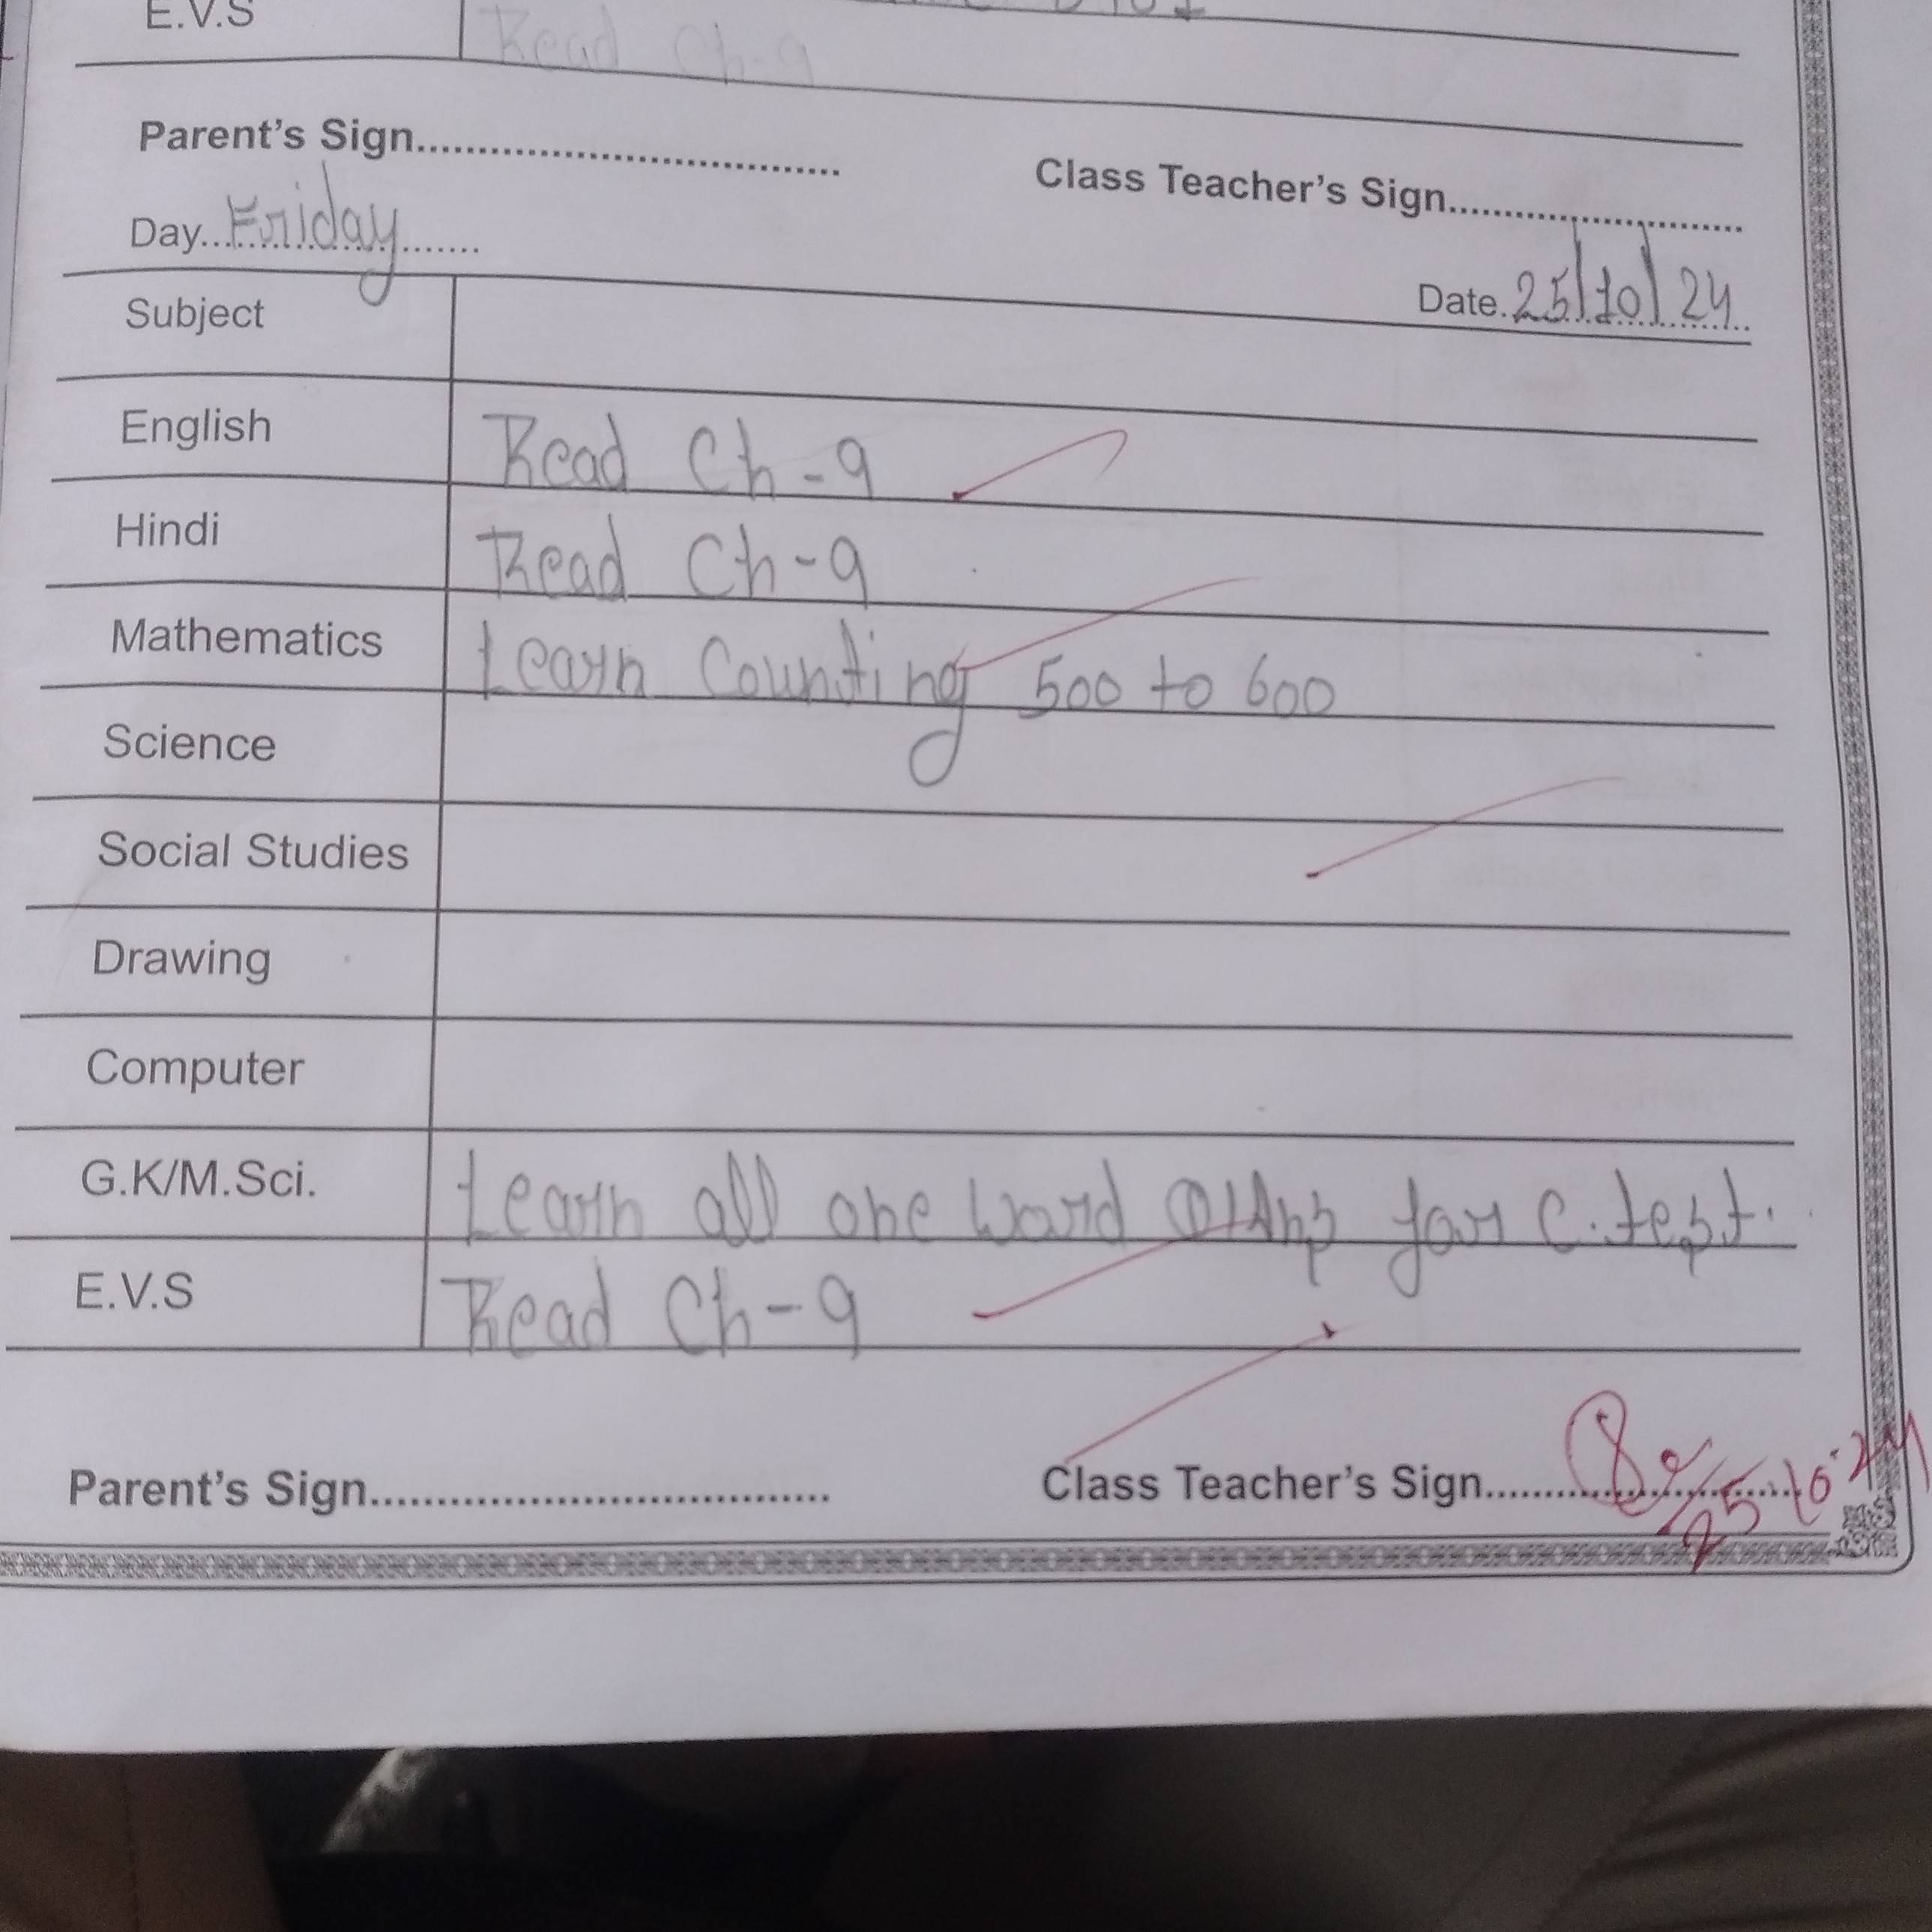 E.V.S Read Ch-9
Parent's Sign........................................ Class Teacher's Sign............................
Day...Friday....... Date.25/10/24
Subject
English Read Ch-9
Hindi Read Ch-9
Mathematics Learn Counting 500 to 600
Science
Social Studies
Drawing
Computer
G.K/M.Sci. Learn all one word for C.test.
E.V.S Read Ch-9
Parent's Sign........................................ Class Teacher's Sign............................
25.10.24